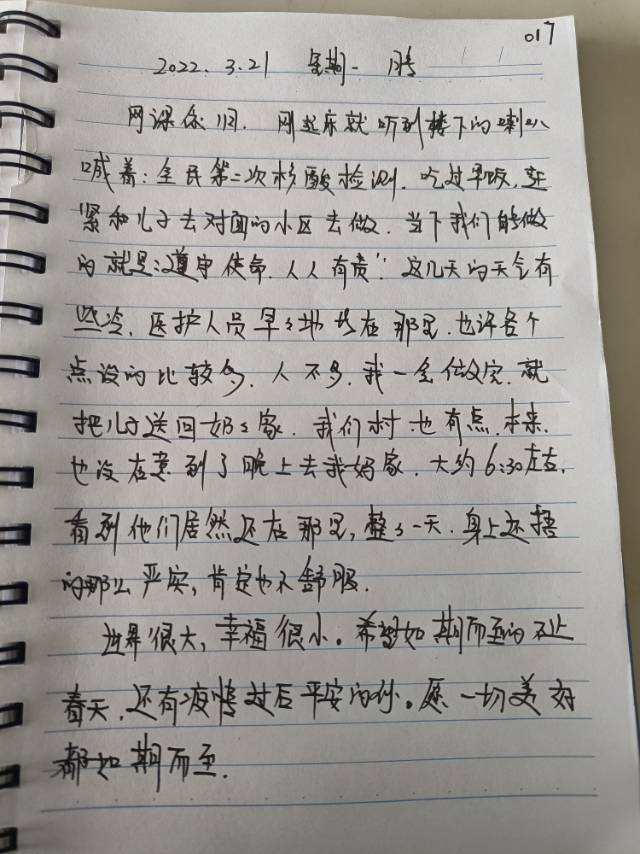 017
2022.3.21 星期一 晴
网课依旧. 刚起床就听到楼下的喇叭
喊着:全民第二次核酸检测. 吃过早饭, 赶
紧和儿子去对面的小区去做. 当下我们能做
的就是:遵守使命, 人人有责". 这几天的天气有
些冷, 医护人员早々地站在那里, 也许各个
点设的比较多, 人不多, 我一会做完, 就
把儿子送回奶々家. 我们村也有点, 本来
也没在意到了晚上去我妈家, 大约6:30左右,
看到他们居然还在那里, 整々一天, 身上还捂
的那么严实, 肯定也不舒服.
世界很大, 幸福很小。希望如期而至的不止
春天, 还有疫情过后平安的你。愿一切美好
都如期而至.